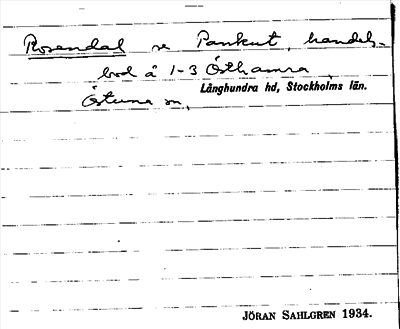 Rosendal se Pankut, handels-
bod å 1-3 Östhamra
Långhundra hd, Stockholms län.
Östuna sn,
JÖRAN SAHLGREN 1934.